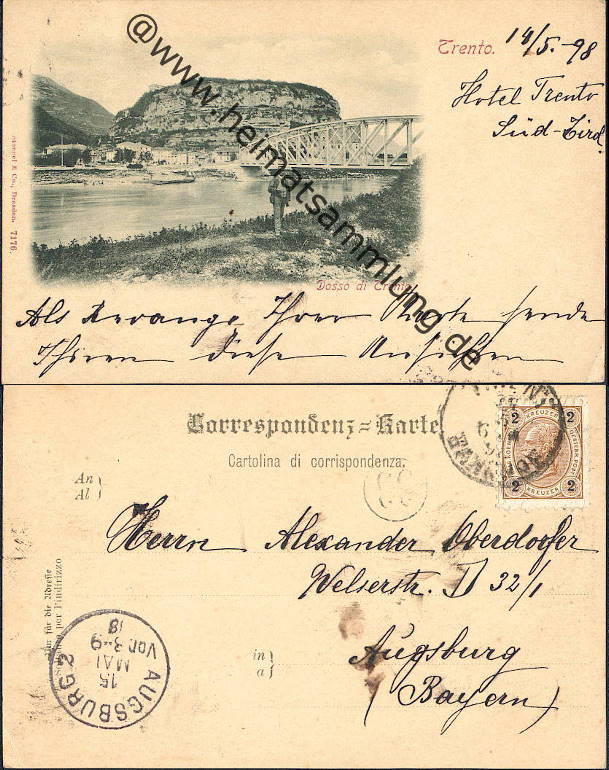 Trento.
14/5. 98
Hotel Trento
Süd-Tirol
@www.heimatsammlung.de
7176.
Dosso di Trento
Als Revange Ihrer Karte sende
Ihnen diese Ansichten
Correspondenz-Karte
Cartolina di corrispondenza.
2 KREUZER 2
2 KREUZER 2
An
Al
33
Herrn Alexander Oberdorfer
Welserstr. D 32/1
Nur für die Adresse
Soltanto per l'indirizzo
in
a
Augsburg
(Bayern)
AUGSBURG 2
15
MAI
Vor. 8-9